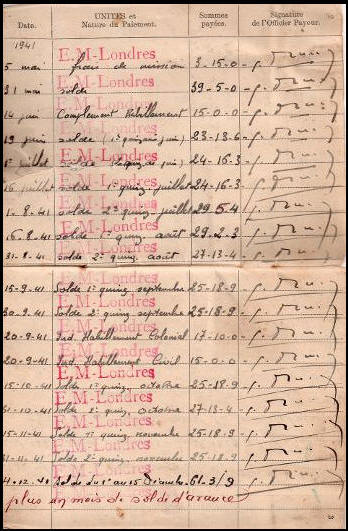 Date. UNITÉS et Nature du Paiement. Sommes payées. Signature de l'Officier Payeur.
1941 E.M-Londres
5 mai frais de mission 3-15-0
E.M-Londres
31 mai solde 39-5-0
E.M-Londres
14 juin Complement habillement 15-0-0
E.M-Londres
19 juin solde (1e quinzaine juin) 23-13-6
E.M-Londres
1er juillet solde quinz. de juin) 24-16-3
E.M-Londres
16 juillet solde 1e quinz. juillet 24-16-3
E.M-Londres
1-8-41 solde 2e quinz. juillet 29-5-4
E.M-Londres
16-8-41 solde 1e quinz. août 29-2-3
E.M-Londres
31-8-41 solde 2e quinz. août 27-13-4
E.M-Londres
15-9-41 Solde 1e quinz. septembre 25-18-9
E.M-Londres
30-9-41 Solde 2e quinz. septembre 25-18-9
E.M-Londres
20-9-41 Ind. Habillement Colonial 17-10-0
E.M-Londres
20-9-41 Ind. Habillement Civil 15-0-0
E.M-Londres
15-10-41 Solde 1e quinz. octobre 25-18-9
E.M-Londres
31-10-41 Solde 2e quinz. octobre 27-13-4
E.M-Londres
15-11-41 Solde 1e quinz. novembre 25-18-9
E.M-Londres
Solde 2e quinz. novembre 25-18-9
E.M-Londres
Solde du 1er au 15 Décembre 61-3/9
E.M-Londres
plus un mois de solde d'avance